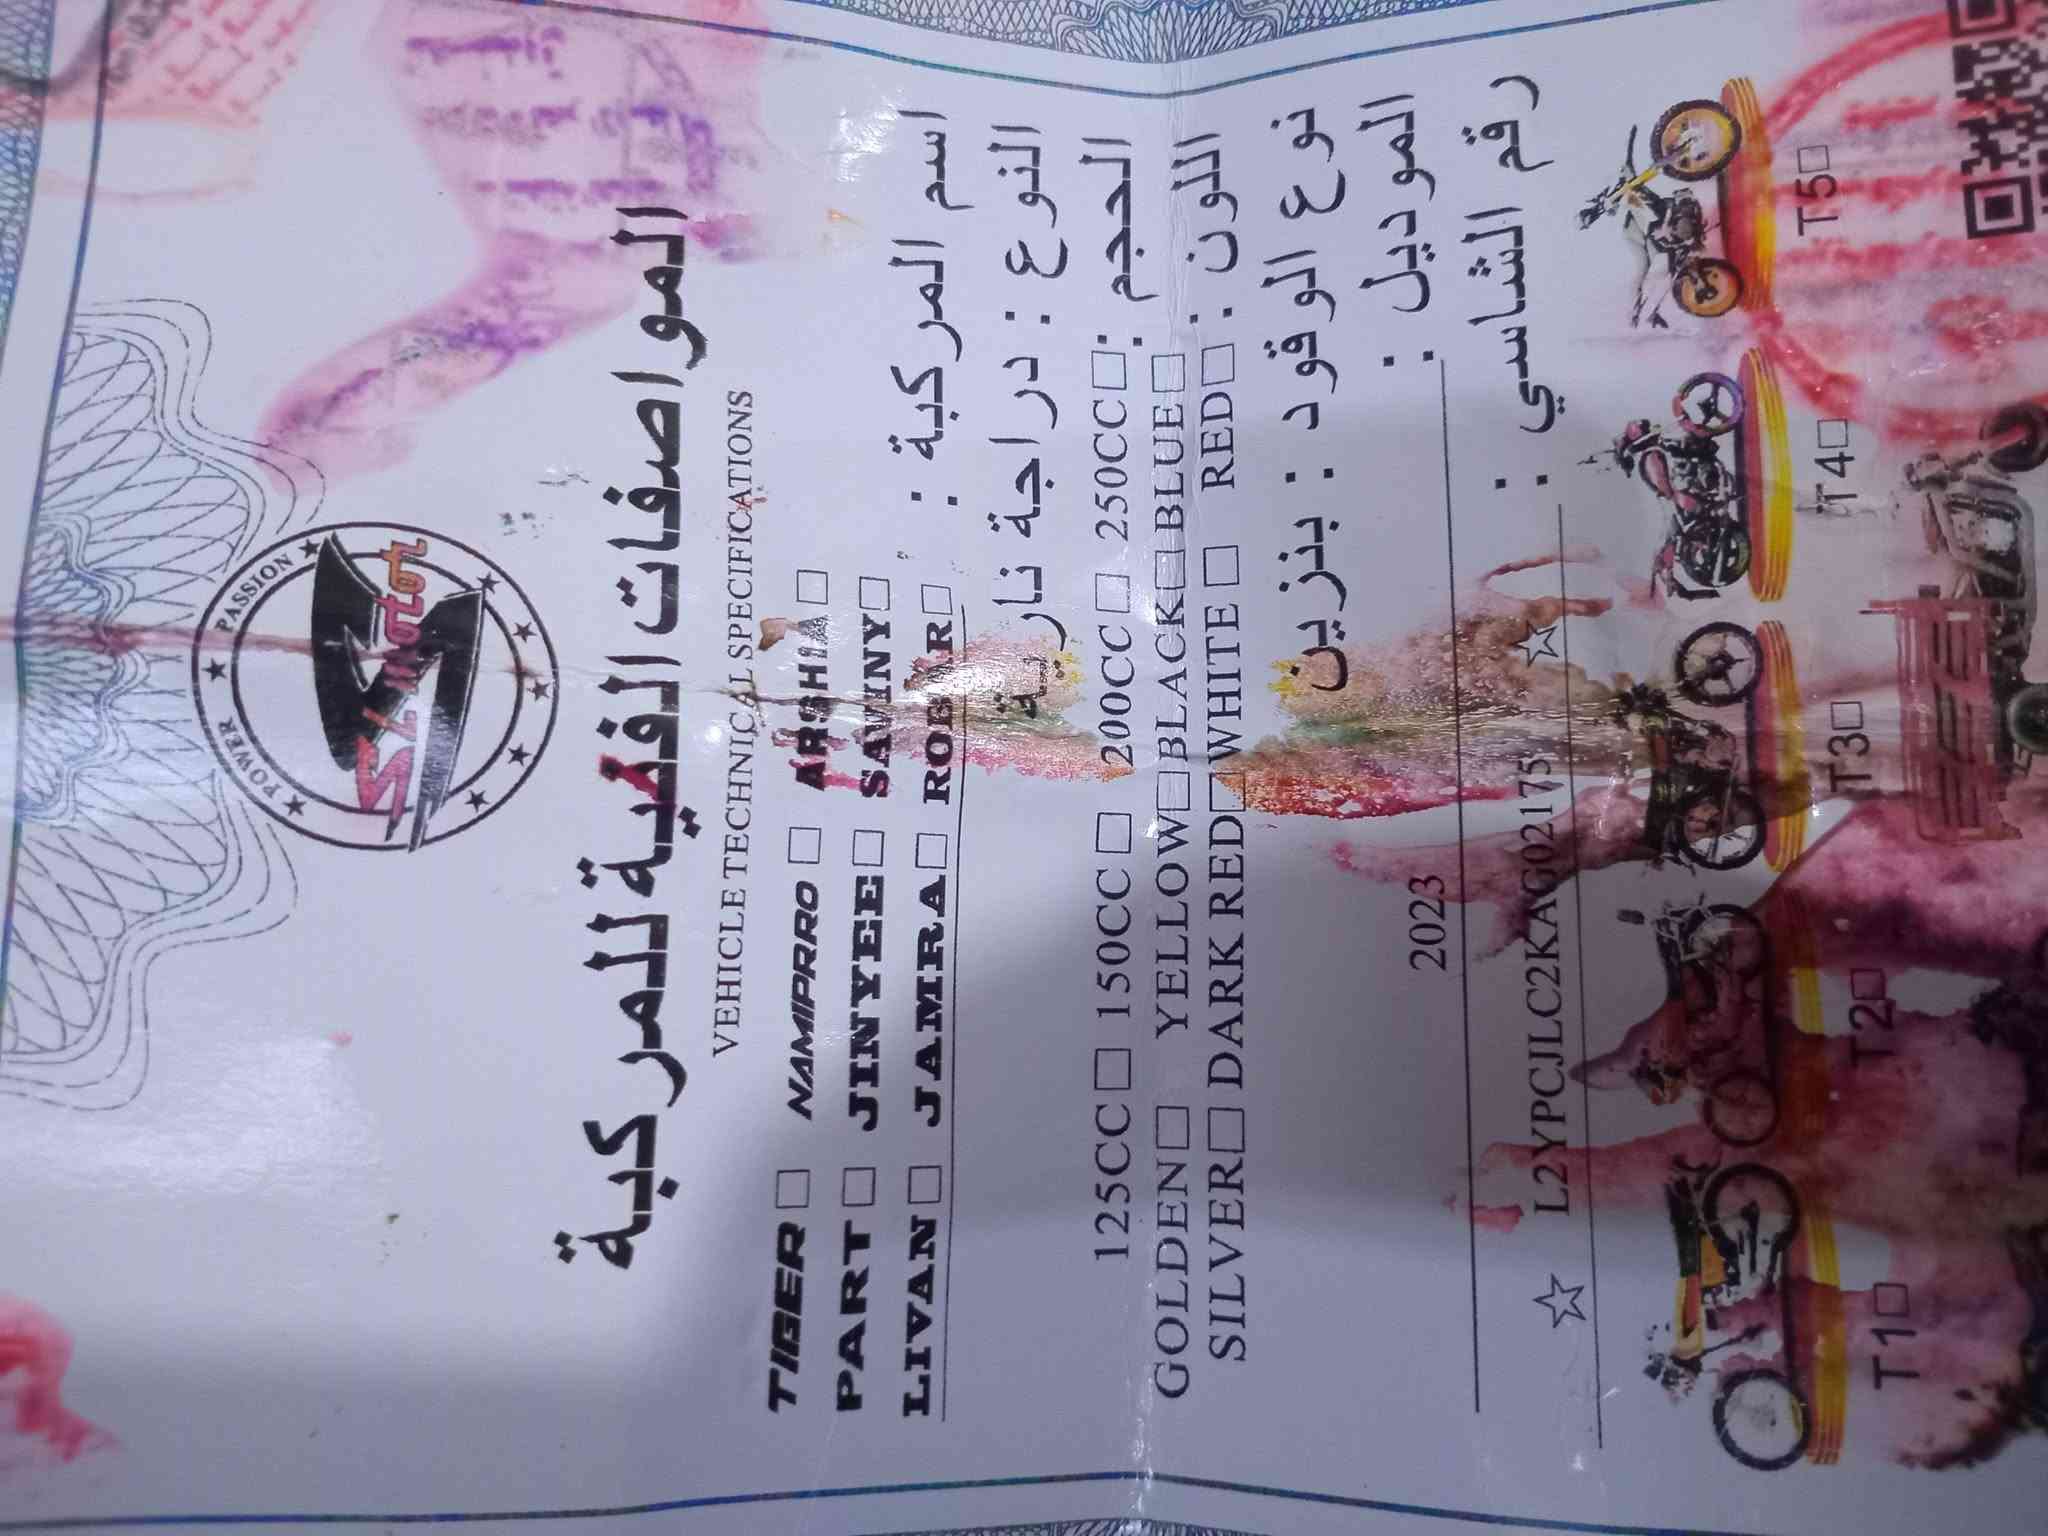 POWER ★ PASSION
SL motor
المواصفات الفنية للمركبة
VEHICLE TECHNICAL SPECIFICATIONS
اسم المركبة :
TIGER □ NAMIPRRO □ ARSHIA □
PART □ JINYEE □ SAVINY □
LIVAN □ JAMRA □ ROBAR □
النوع : دراجة نارية
الحجم : 125CC □ 150CC □ 200CC □ 250CC □
اللون : GOLDEN □ YELLOW □ BLACK □ BLUE □
SILVER □ DARK RED □ WHITE □ RED □
نوع الوقود : بنزين
الموديل : 2023
رقم الشاسي : ☆ L2YPCJLC2KAG02175 ☆
T1 □ T2 □ T3 □ T4 □ T5 □